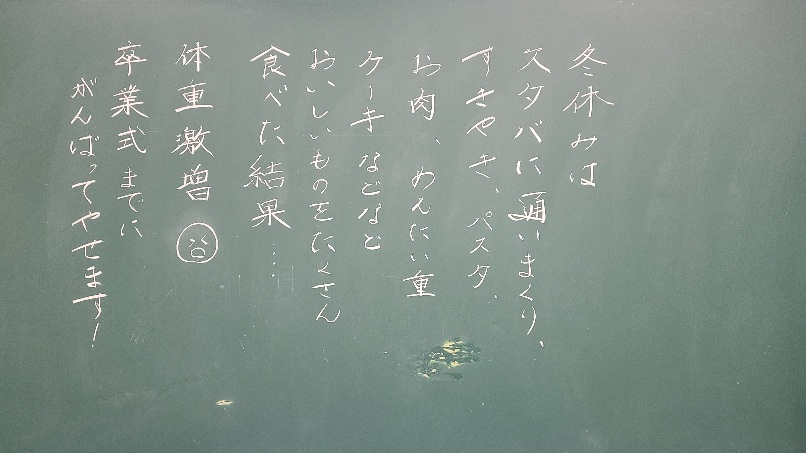 冬休みは
スタバに通いまくり、
すきやき、パスタ、
お肉、めんたい重
ケーキなどなど
おいしいものをたくさん
食べた結果…
体重激増
卒業式までに
がんばってやせます！